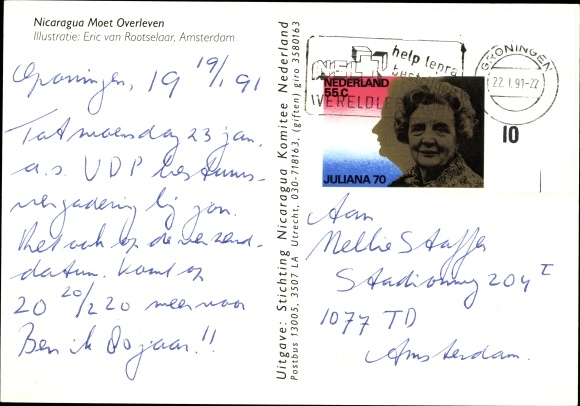 Nicaragua Moet Overleven
Illustratie: Eric van Rootselaar, Amsterdam
Groningen, 19 19/1 91
Tot woensdag 23 jan.
a.s. VDP bestuurs-
vergadering bij jou.
Let ook op de verzend-
datum. Komt op
20 20/2 20 meer voor
Ben ik 80 jaar!!
Uitgave: Stichting Nicaragua Komitee Nederland
Postbus 13005, 3507 LA Utrecht, 030-718163, (giften) giro 3580163
help lepra
WERELD
GRONINGEN
22.1.91-22
NEDERLAND
55c
JULIANA 70
10
Aan
Nellie Staffer
Stadionweg 204 I
1077 TD
Amsterdam.